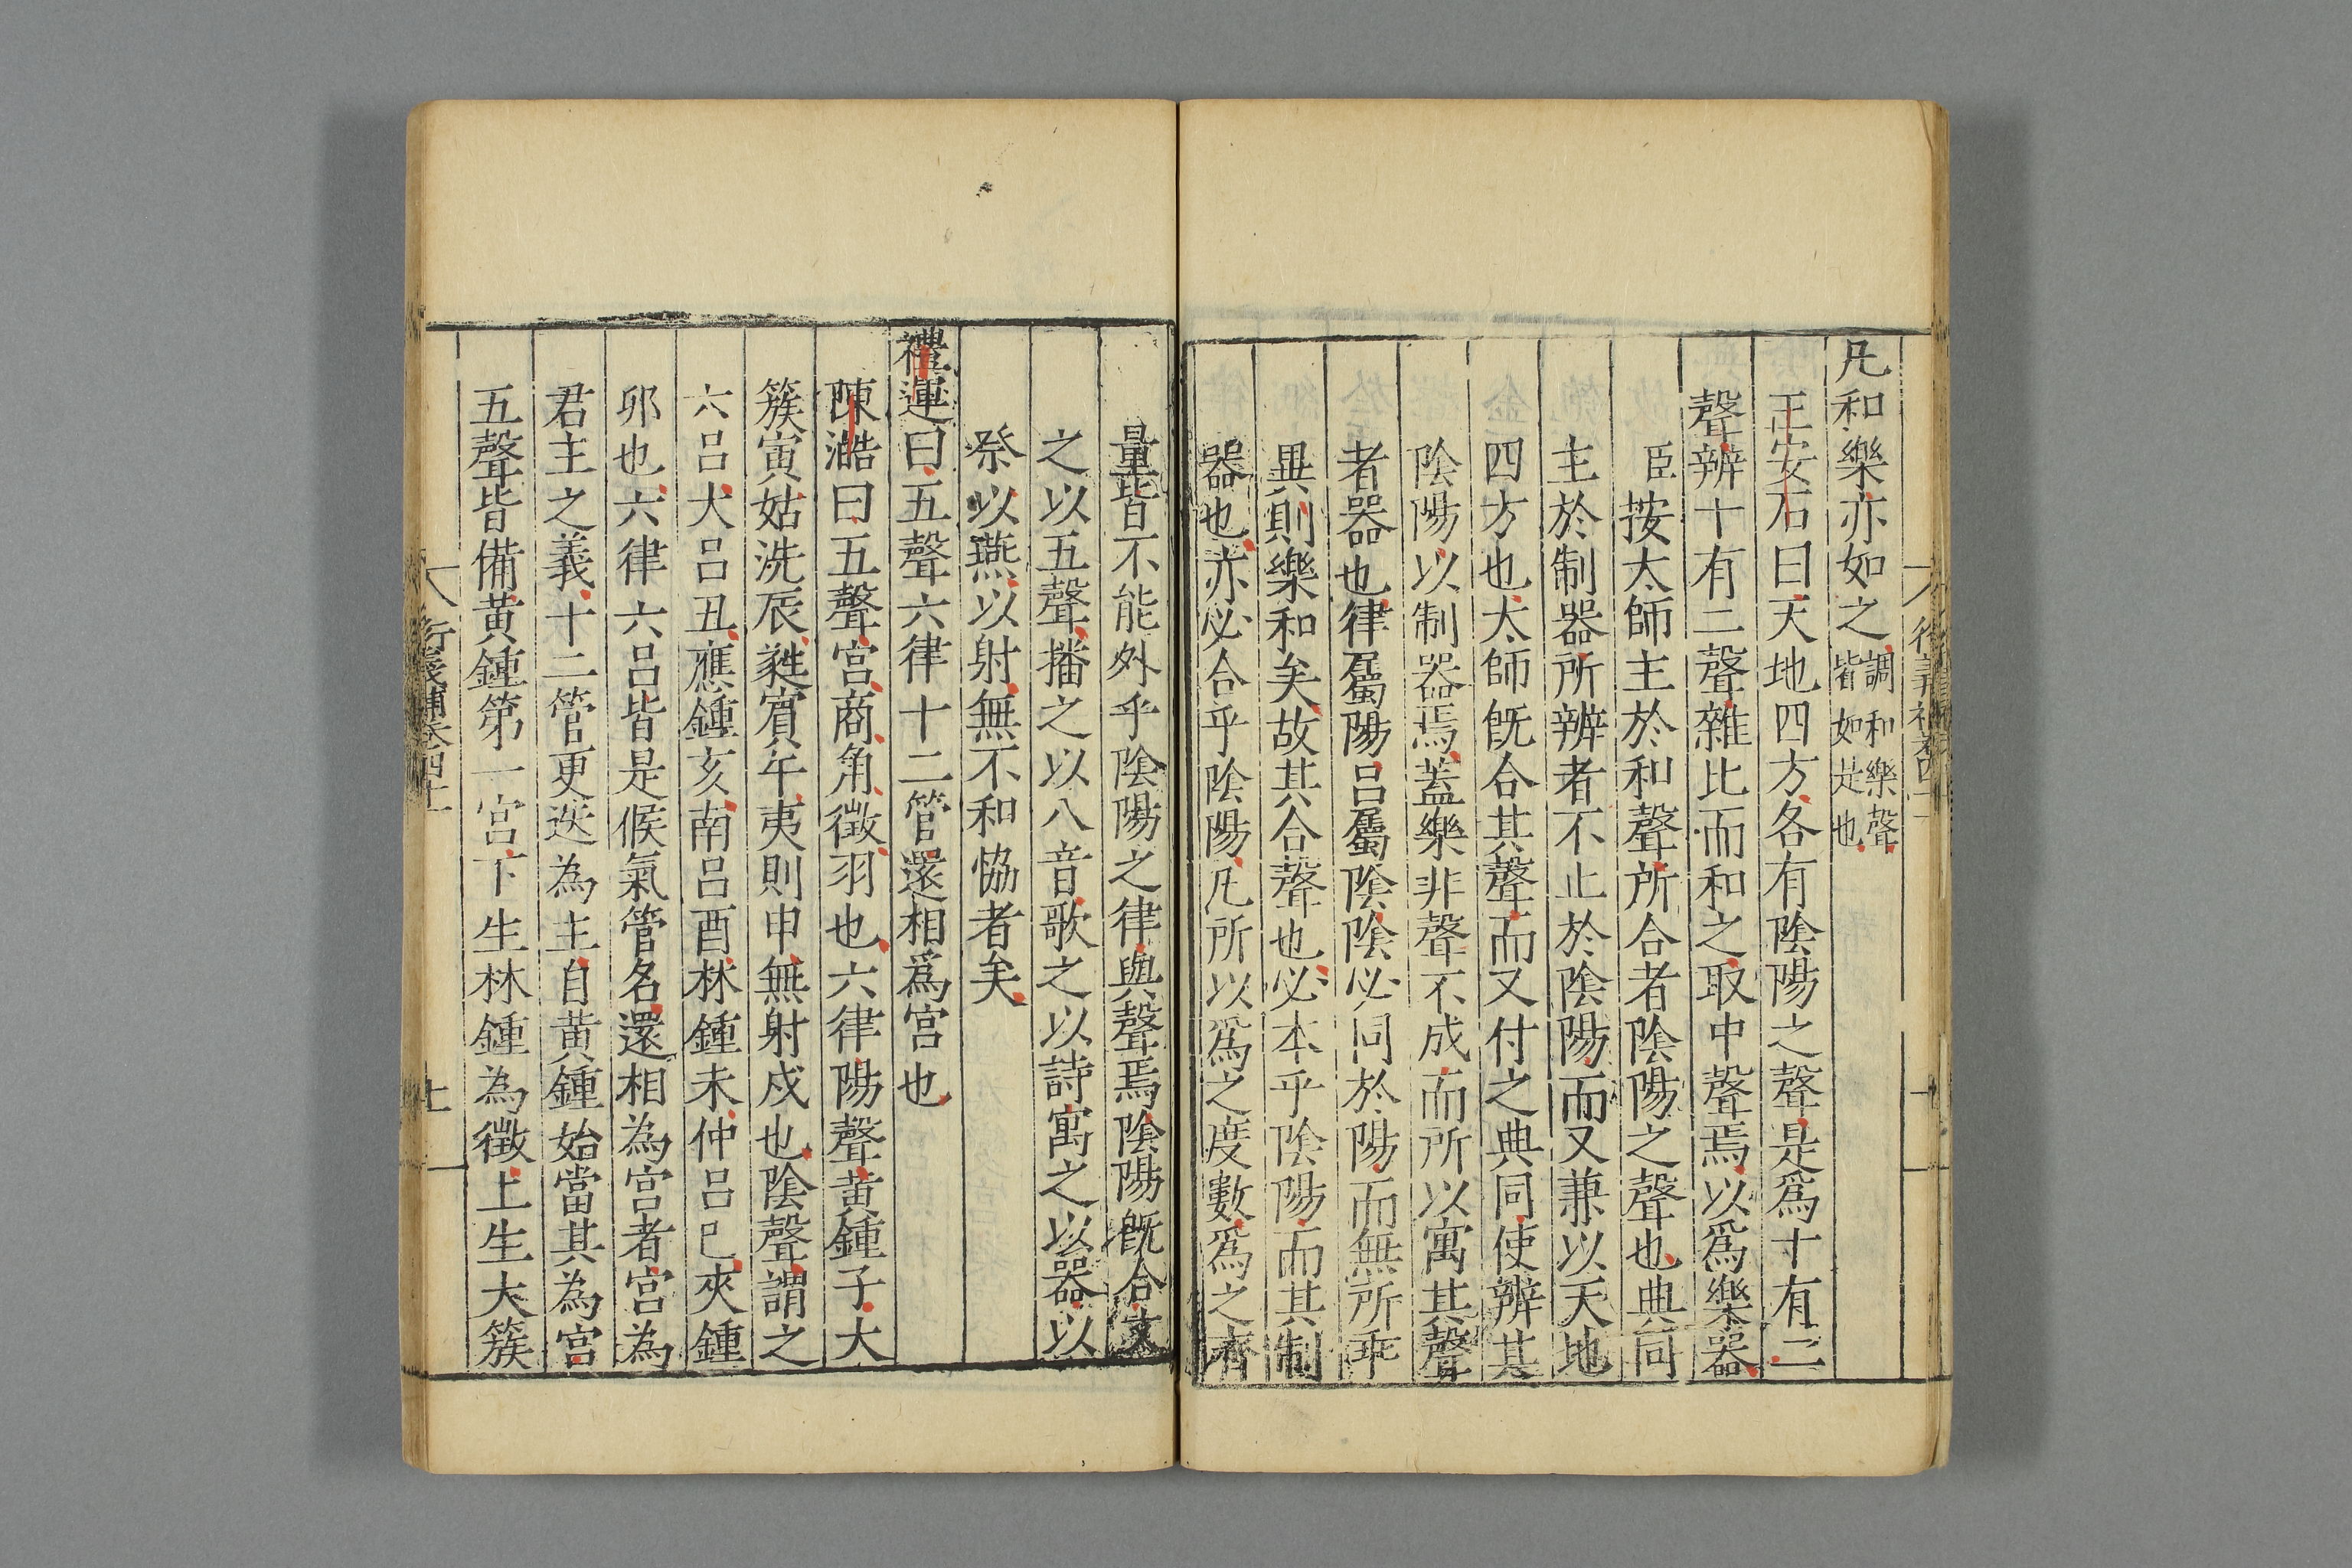 凡和樂亦如之調和樂聲皆如是也
王安石曰天地四方各有陰陽之聲是爲十有二
聲辨十有二聲雜比而和之取中聲焉以爲樂器
臣按太師主於和聲所合者陰陽之聲也典同
主於制器所辨者不止於陰陽而又兼以天地
四方也太師旣合其聲而又付之典同使辨其
陰陽以制器焉蓋樂非聲不成而所以寓其聲
者器也律屬陽呂屬陰陰必同於陽而無所乖
異則樂和矣故其合聲也必本乎陰陽而其制
器也亦必合乎陰陽凡所以爲之度數爲之齊
量皆不能外乎陰陽之律與聲焉陰陽旣合文
之以五聲播之以八音歌之以詩寓之以器以
祭以燕以射無不和恊者矣
禮運曰五聲六律十二管還相爲宮也
陳澔曰五聲宮商角徵羽也六律陽聲黃鍾子大
簇寅姑洗辰蕤賓午夷則申無射戌也陰聲謂之
六呂大呂丑應鍾亥南呂酉林鍾未仲呂巳夾鍾
卯也六律六呂皆是候氣管名還相為宮者宮為
君主之義十二管更迭為主自黃鍾始當其為宮
五聲皆備黃鍾第一宮下生林鍾為徵上生大簇
衍義補卷四十